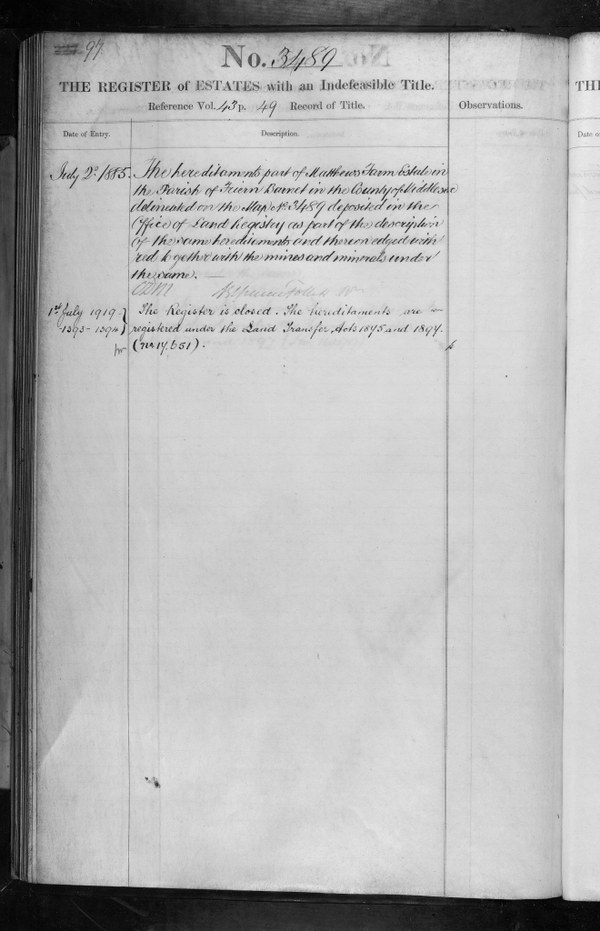 97
No. 3489
THE REGISTER of ESTATES with an Indefeasible Title.
Reference Vol. 43 p. 49 Record of Title.
Observations.
Date of Entry.
Description.
July 2d 1885.
The hereditaments part of Matthews Farm Estate in
the Parish of Friern Barnet in the County of Middlesex
delineated on the Map No. 3489 deposited in the
Office of Land Registry as part of the description
of the same hereditaments and thereon edged with
red together with the mines and minerals under
the same.
1st July 1919
1393-1394
The Register is closed. The hereditaments are
registered under the Land Transfer Acts 1875 and 1897.
(No 17,651).
TH
Date o